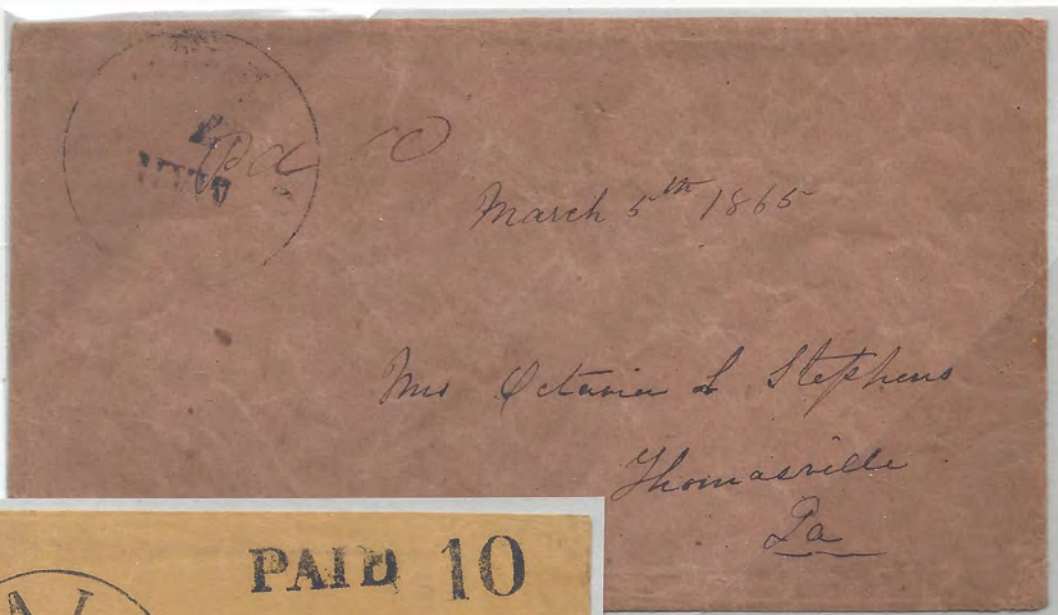 Pd 10
March 5th 1865
Mrs Octavia L Stephens
Thomasville
Ga
PAID 10
N